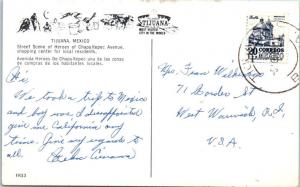 TIJUANA, MEXICO
Street Scene of Heroes of Chapultepec Avenue,
shopping center for local residents.
Avenida Heroes De Chapultepec una de las zonas
de compras de los habitantes locales.
TIJUANA
MOST VISITED
CITY IN THE WORLD
CORREOS
Hi:
We took a trip to Mexico
and boy was I disappointed
give me California any
time. Give my regards to
all.
Mrs. Jean
71 Border St
West Warwick, R.I.
U.S.A.